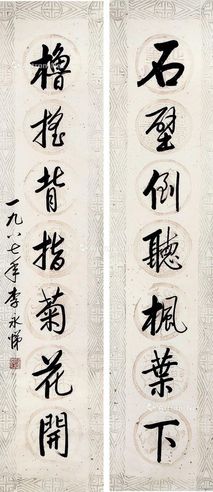 石壁倒聽楓葉下
櫓搖背指菊花開
一九八七年 李永悌